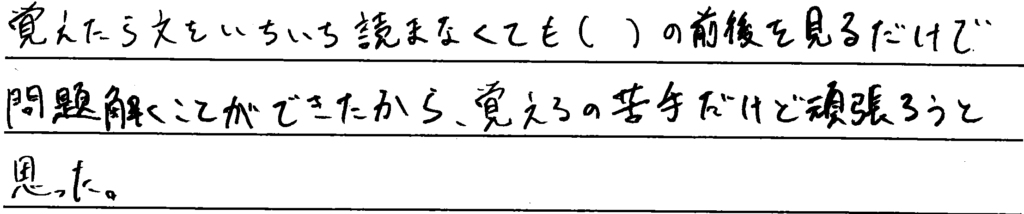 覚えたら文をいちいち読まなくても( )の前後を見るだけで
問題解くことができたから、覚えるの苦手だけど頑張ろうと
思った。